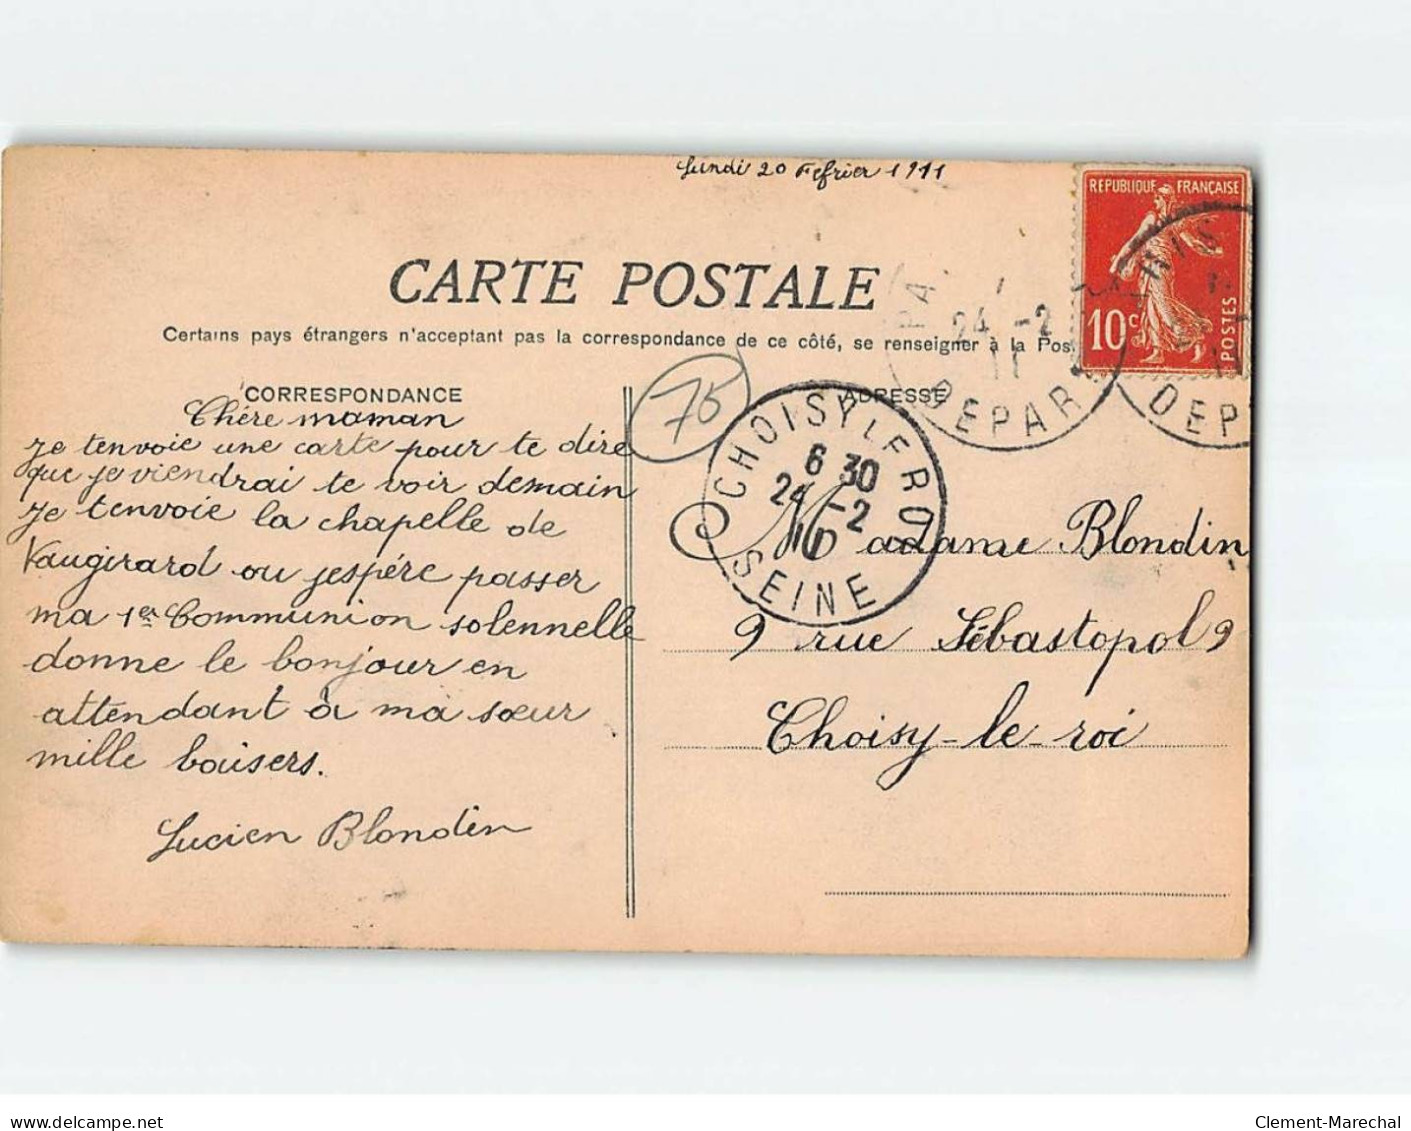 Lundi 20 Fefrier 1911
REPUBLIQUE FRANÇAISE
10c
POSTES
CARTE POSTALE
Certains pays étrangers n'acceptant pas la correspondance de ce côté, se renseigner à la Pos
PA
24 -2
11
DEPAR
RIS
DEP
CORRESPONDANCE
ADRESSE
75
CHOISY LE ROI
6 30
24 -2
SEINE
Chére maman
je tenvoie une carte pour te dire
que je viendrai te voir demain
je tenvoie la chapelle de
Vaugirard ou jespére passer
ma 1er Communion solennelle
donne le bonjour en
attendant à ma sœur
mille baisers.
Lucien Blondin
Madame Blondin
9 rue Sébastopol 9
Choisy-le-roi
delcampe.net
Clement-Marechal